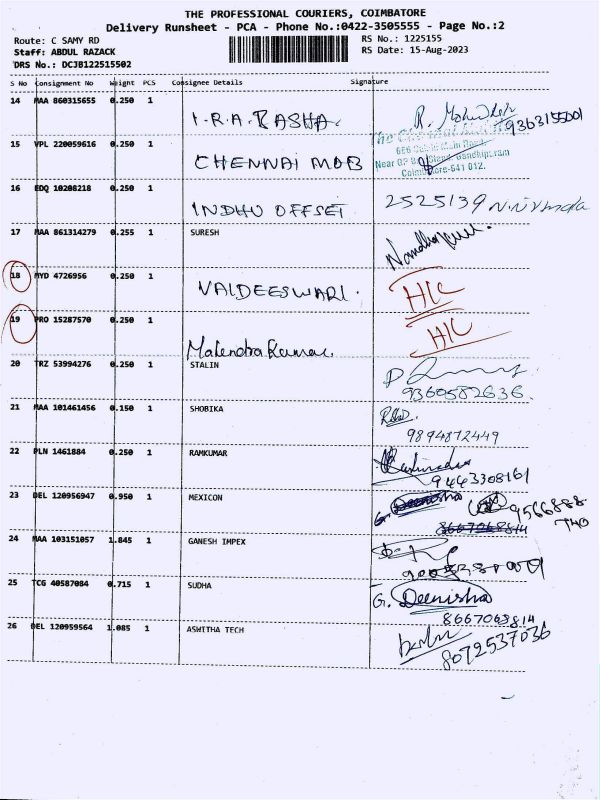 THE PROFESSIONAL COURIERS, COIMBATORE
Delivery Runsheet - PCA - Phone No.:0422-3505555 - Page No.:2
Route: C SAMY RD
RS No.: 1225155
Staff: ABDUL RAZACK
RS Date: 15-Aug-2023
DRS No.: DCJB122515502
S No Consignment No Weight PCS Consignee Details Signature
14 MAA 860315655 0.250 1
I.R.A. BASHA. 9363155001
15 VPL 220059616 0.250 1
CHENNAI MOB
Near GP Gandhipuram
Coimbatore-641 012.
16 EDQ 10208218 0.250 1
INDHU OFFSET 2525139
17 MAA 861314279 0.255 1 SURESH
18 MYD 4726956 0.250 1
VAIDEESWARI. HIC
19 PRO 15287570 0.250 1
HIC
20 TRZ 53994276 0.250 1 STALIN
9360582636.
21 MAA 101461456 0.150 1 SHOBIKA
9894872449
22 PLN 1461884 0.250 1 RAMKUMAR
9443308161
23 DEL 120956947 0.950 1 MEXICON
24 MAA 103151057 1.845 1 GANESH IMPEX
25 TCG 40587084 0.715 1 SUDHA
G. Deenisha
8667068814
26 DEL 120959564 1.085 1 ASWITHA TECH
8072537036